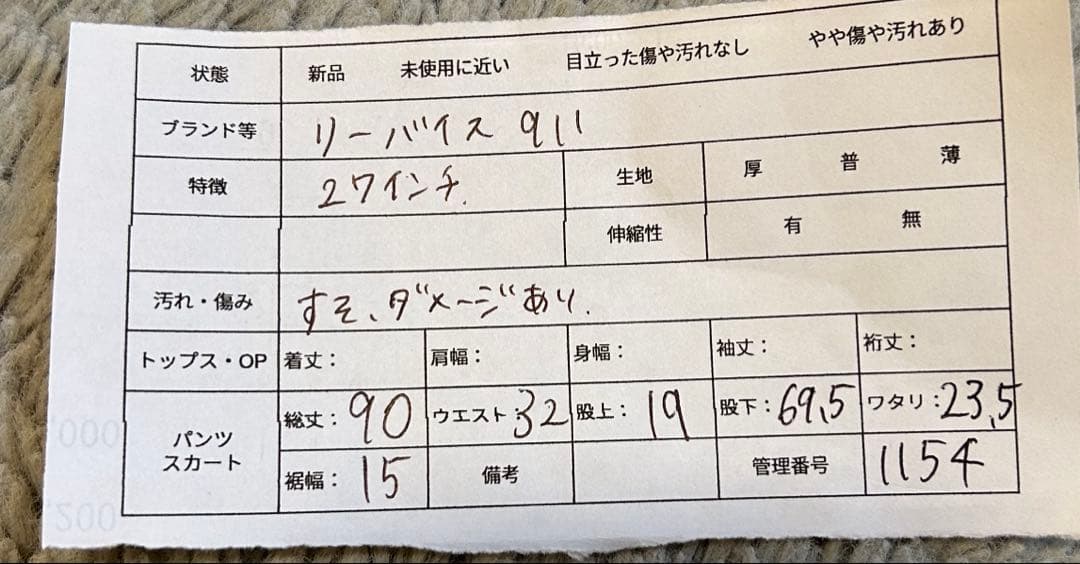 状態 新品 未使用に近い 目立った傷や汚れなし やや傷や汚れあり
ブランド等 リーバイス 911
特徴 27インチ. 生地 厚 普 薄
伸縮性 有 無
汚れ・傷み すそ、ダメージあり.
トップス・OP 着丈: 肩幅: 身幅: 袖丈: 裄丈:
パンツ
スカート
総丈: 90 ウエスト: 32 股上: 19 股下: 69.5 ワタリ: 23.5
裾幅: 15 備考 管理番号 1154
,000
,200